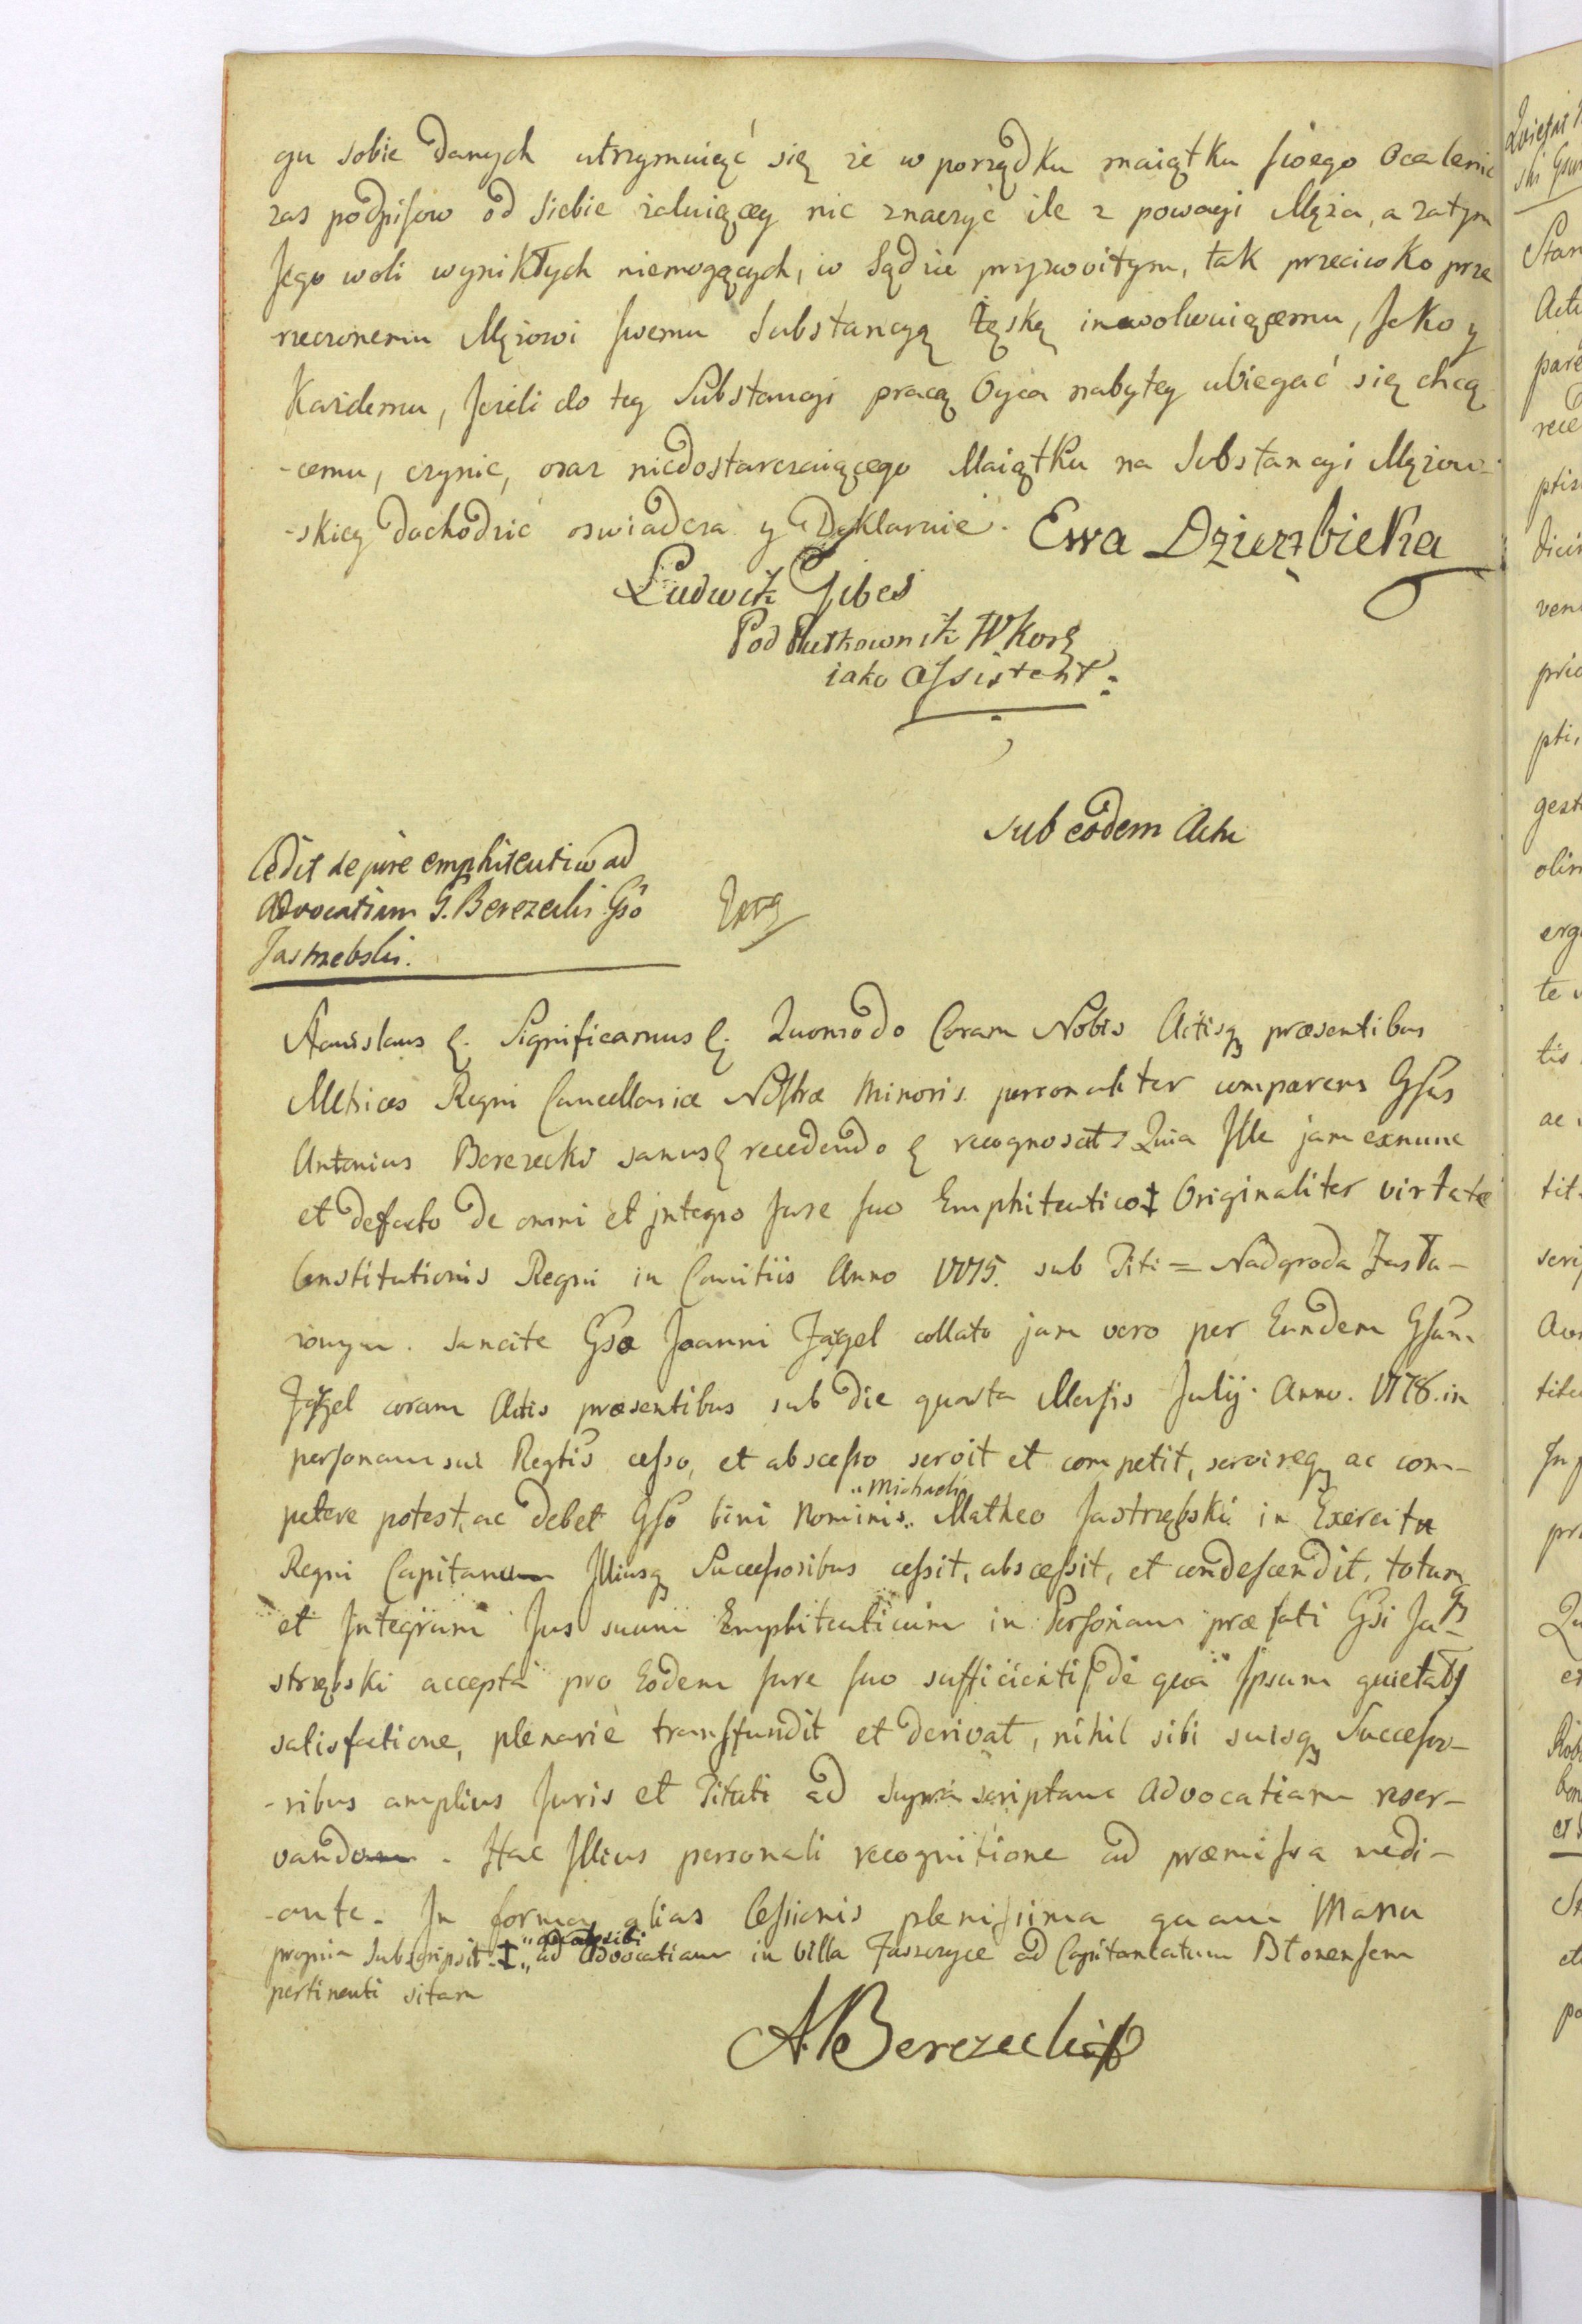 gu sobie danych utrzymuięć się że w porządku maiątku swego Ocalenie
zas podpisow od siebie żaluiącey nic znaczyć ile z powagi Męża, a zatym
Jego woli wynikłych niemogących, w Sądzie przyzwoitym, tak przeciwko prze
rzeczonemu Mężowi swemu Substancyą tęską inwolwuiącemu, Jako y
Każdemu, Jeżeli do tey Substancyi pracą Oyca nabytey ubiegać się chcą
-cemu, czynic, oraz niedostarczaiącego Maiątku na Substancyi Mężow-
-skiey dochodzić oswiadcza y Deklaruie.
Ewa Dzierzbicka
Ludwik Gibes
Pod Pułkownik WKorę
iako Assistent:
Sub eodem Actu
Cedit de jure emphiteutico ad
Advocatiam G. Berezecki Gso
Jastrzebski.
Stanislaus ę. Significamus ę. Quomodo Coram Nobis Actisq præsentibus
Metrices Regni Cancellariæ Nostræ Minoris personaliter comparens Gsus
Antonius Berezecki sanus ę recedendo ę recognoscit Quia Ille jam exnunc
et defacto de omni et integro Jure suo Emphiteutico ‡ Originaliter virtute
Constitutionis Regni in Comitiis Anno 1775. sub Titi = Nadgroda Zasłu-
żonym. sancite Gso Joanni Jagel collato jam vero per Eundem Gsum
Jagel coram Actis præsentibus sub die quarta Mensis Julij Anno. 1778. in
personam sui Regtis cesso, et abscesso servit et competit, servireq ac com-
petere potest, ac debet Gso bini Nominis "Michaeli" Matheo Jastrzębski in Exercitu
Regni Capitaneo Illiusq Successoribus cessit, abscessit, et condescendit, totum
et Integrum Jus suum Emphiteuticum in Personam præfati Gsi Ja-
strzębski accepta pro Eodem Jure suo sufficienti (de qua Ipsum quietat)
satisfactione, plenarie transfundit et derivat, nihil sibi suisq Successo-
-ribus amplius Juris et Tituli ad supra scriptam Advocatiam reser-
vando. Hac Illius personali recognitione ad præmissa medi-
-ante. In forma alias Cessionis plenissima quam Manu
propria Subscripsit. ‡ " ad Advocatiam in Villa Jaszczyce ad Capitaneatum Blonensem
pertinenti sitam
A Berezecki